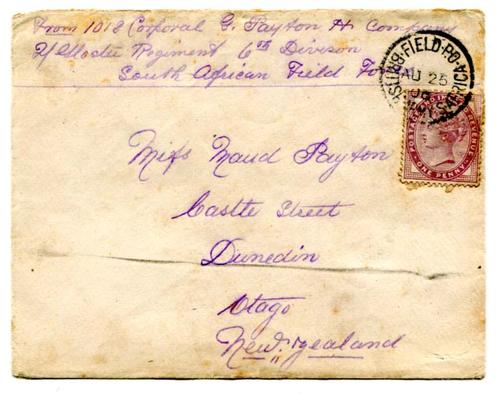 From 1018 Corporal G. Payton H Company
Regiment 6th Divison
South African Field
FIELD·P.O·
BRITISH
AU 25
ONE PENNY
Miss Maud Payton
Castle Street
Dunedin
Otago
New Zealand